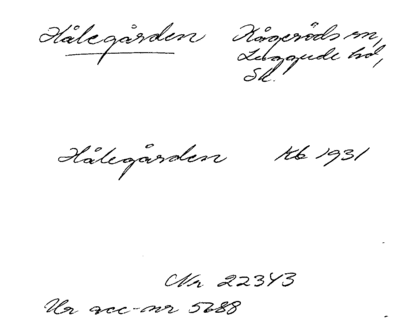 Hålegården Kågeröds sn,
Luggude hd,
Sk.
Hålegården Kb 1931
Nr 22343
Ur acc-nr 5688